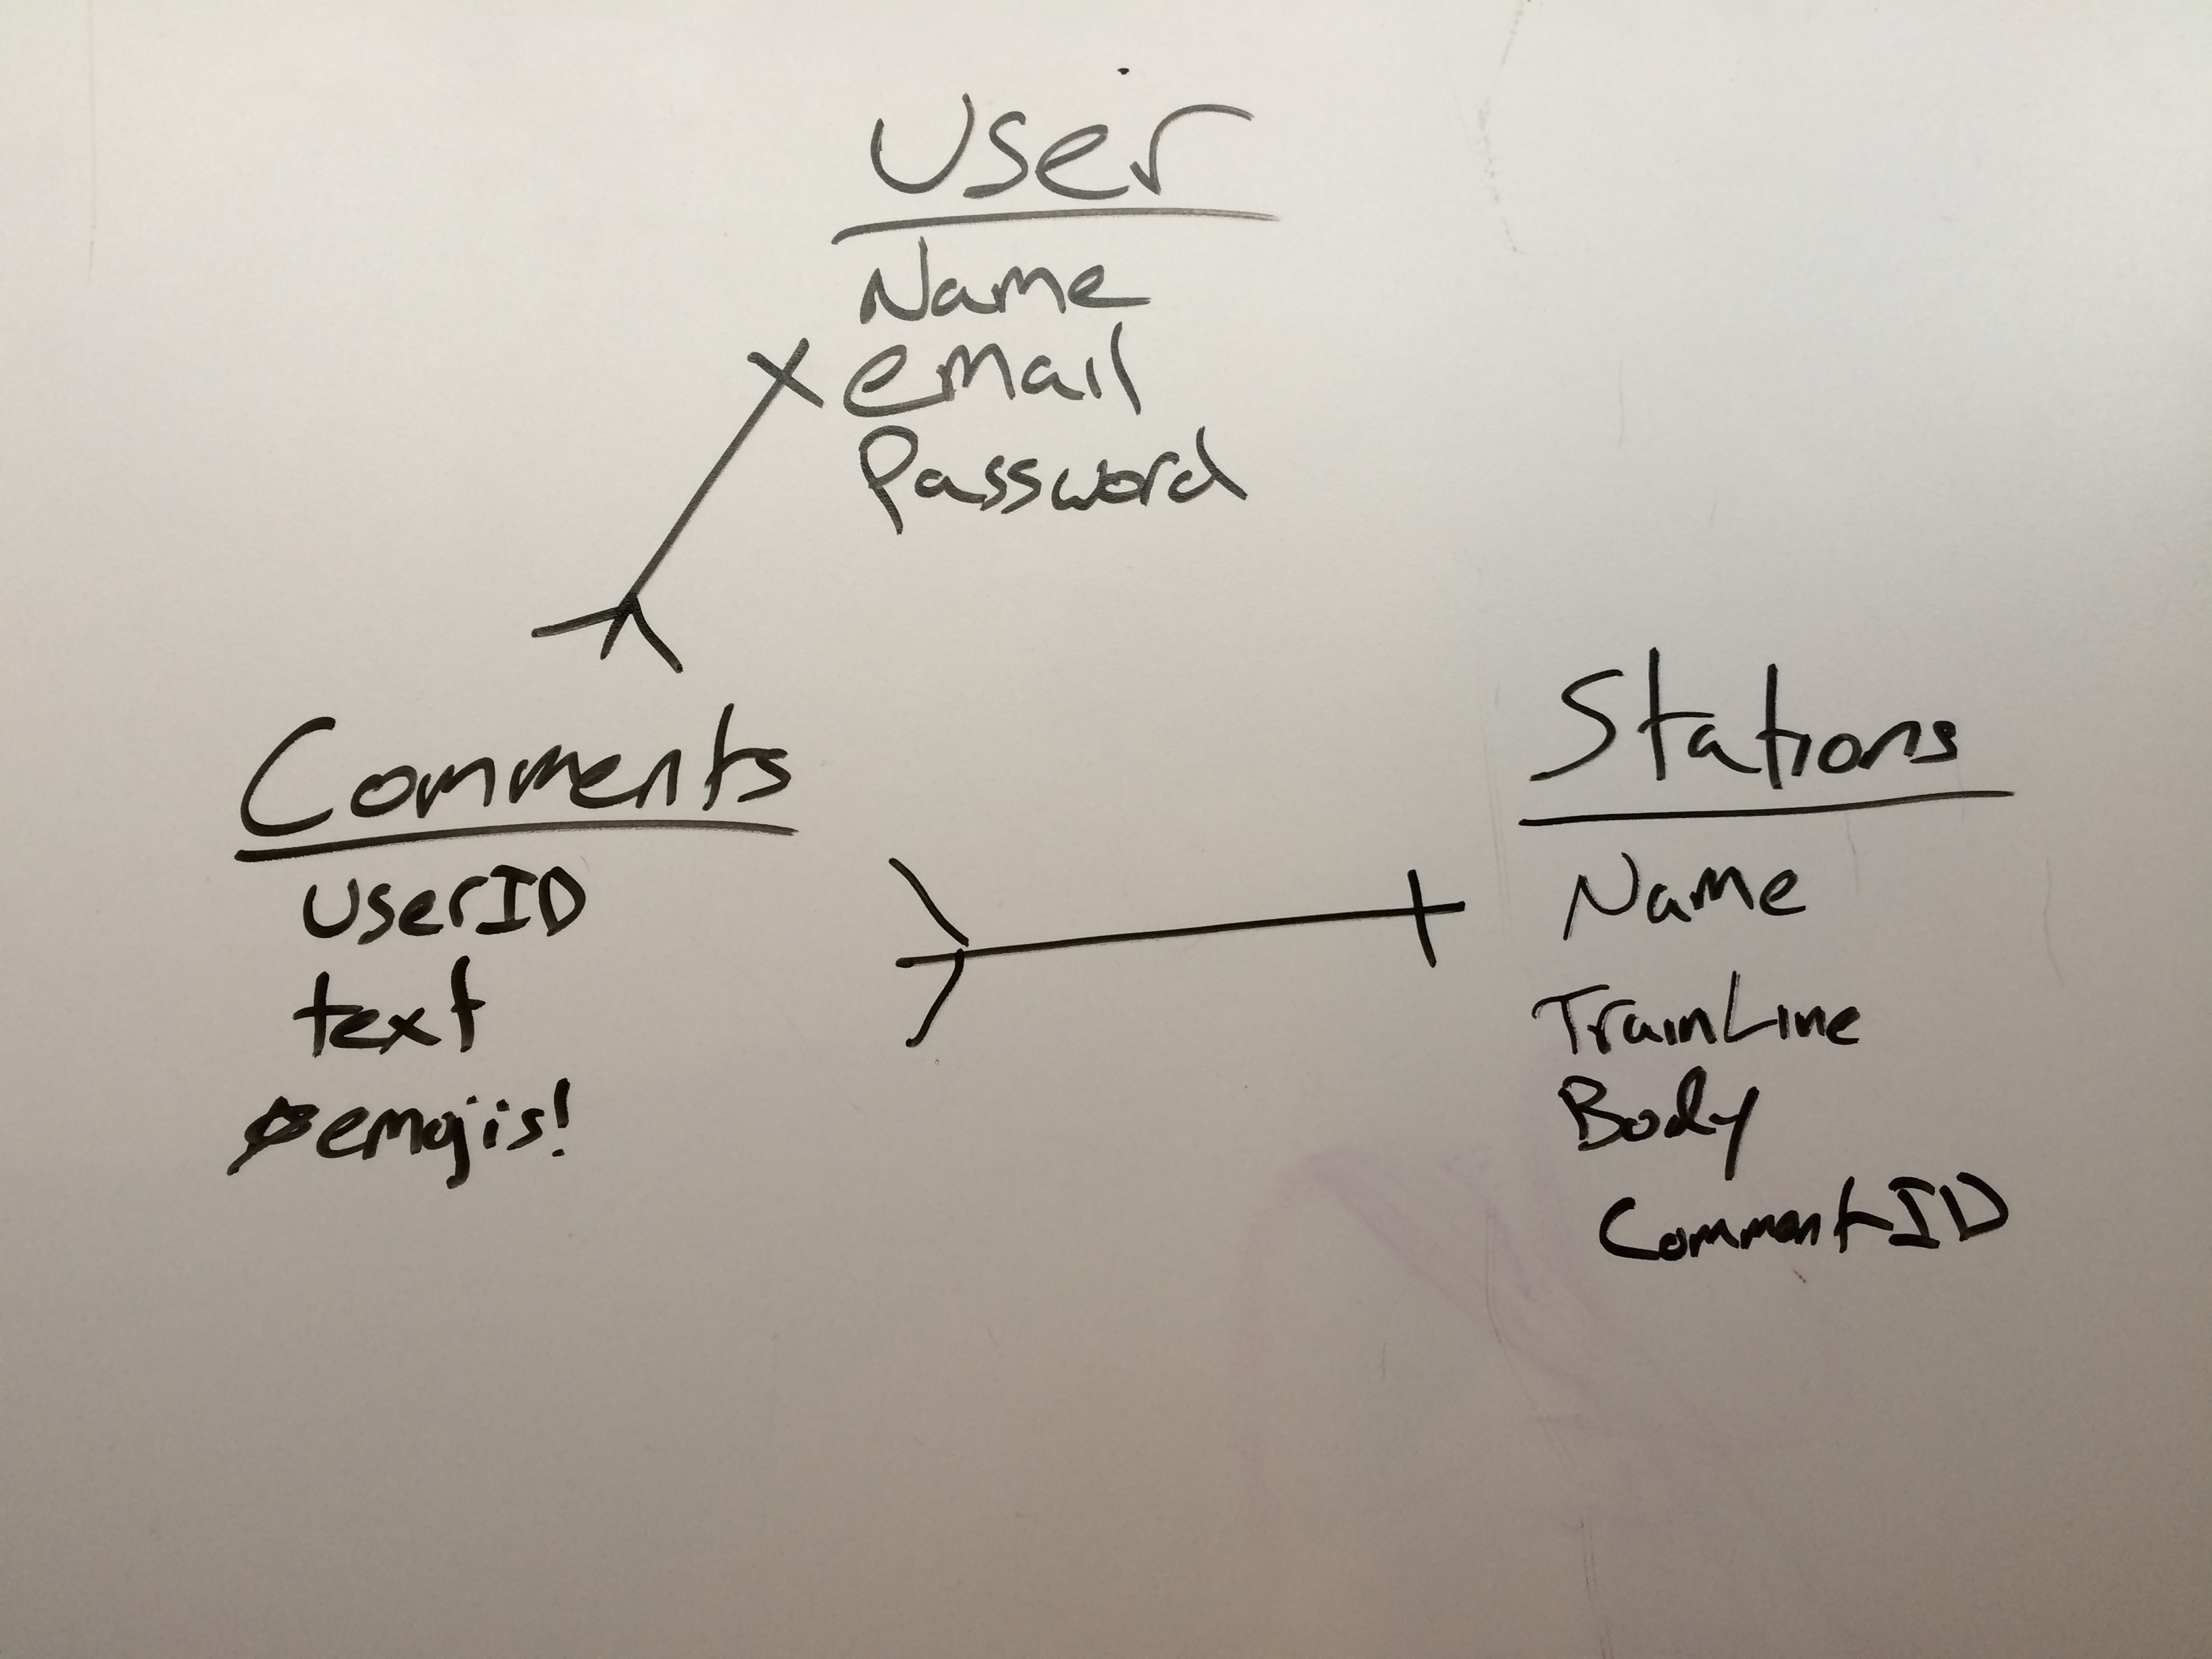 User
Name
email
Password
Comments
UserID
text
emojis!
Stations
Name
TrainLine
Body
CommentID